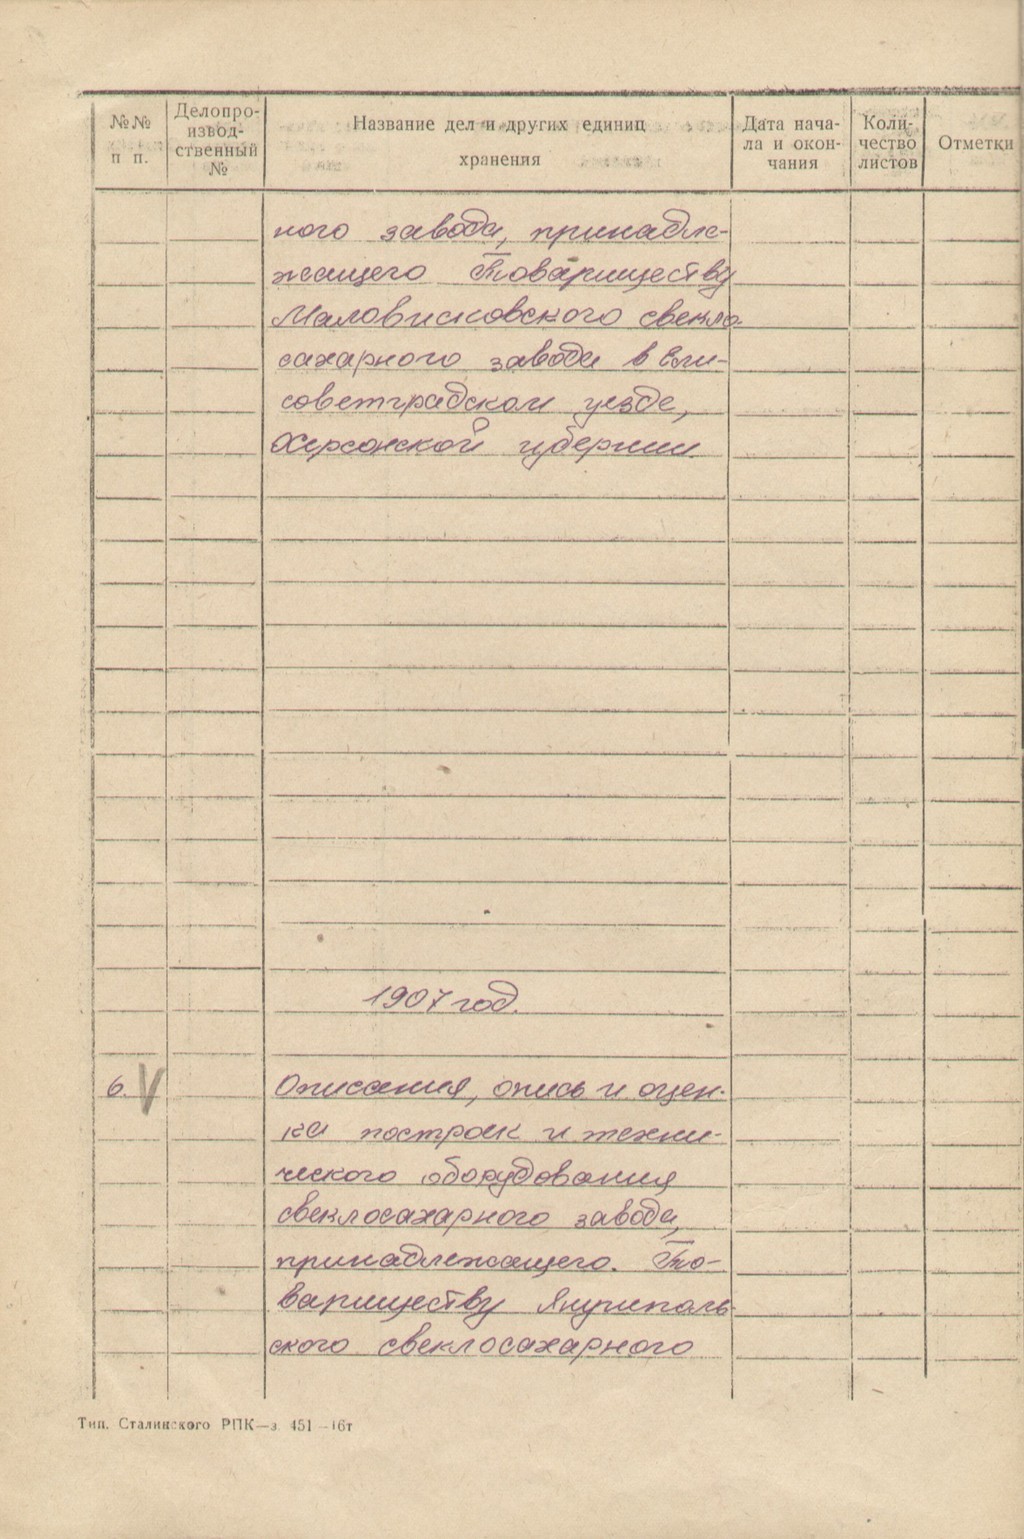 №№ п п.
Делопроизвод-
ственный
№
Название дел и других единиц
хранения
Дата нача-
ла и окон-
чания
Коли-
чество
листов
Отметки
ного завода, принадле-
жащего Товариществу
Маловисковского свекло-
сахарного завода в Ели-
советградском уезде,
Херсонской губернии.
1907 год.
6. V
Описания, опись и оцен-
ка построек и техни-
ческого оборудования
свеклосахарного завода,
принадлежащего. То-
вариществу Янушполь-
ского свеклосахарного
Тип. Сталинского РПК—з. 451—16т